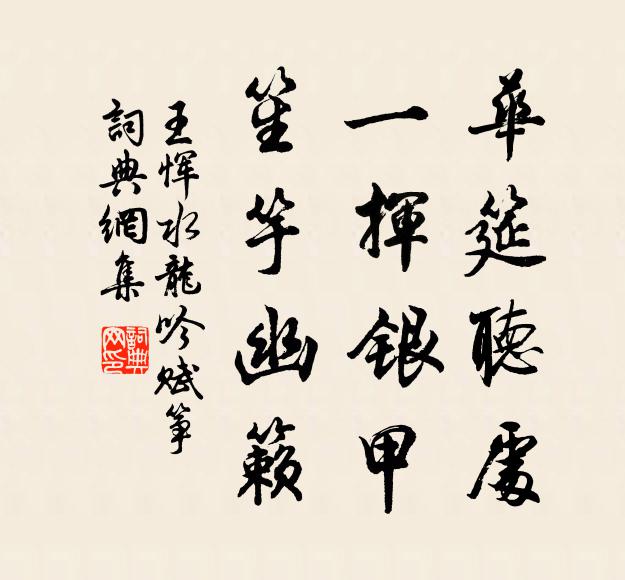 華筵聽處
一揮銀甲
笙竽幽籟
王惲水龍吟賦箏
詞典網集
詞典網印